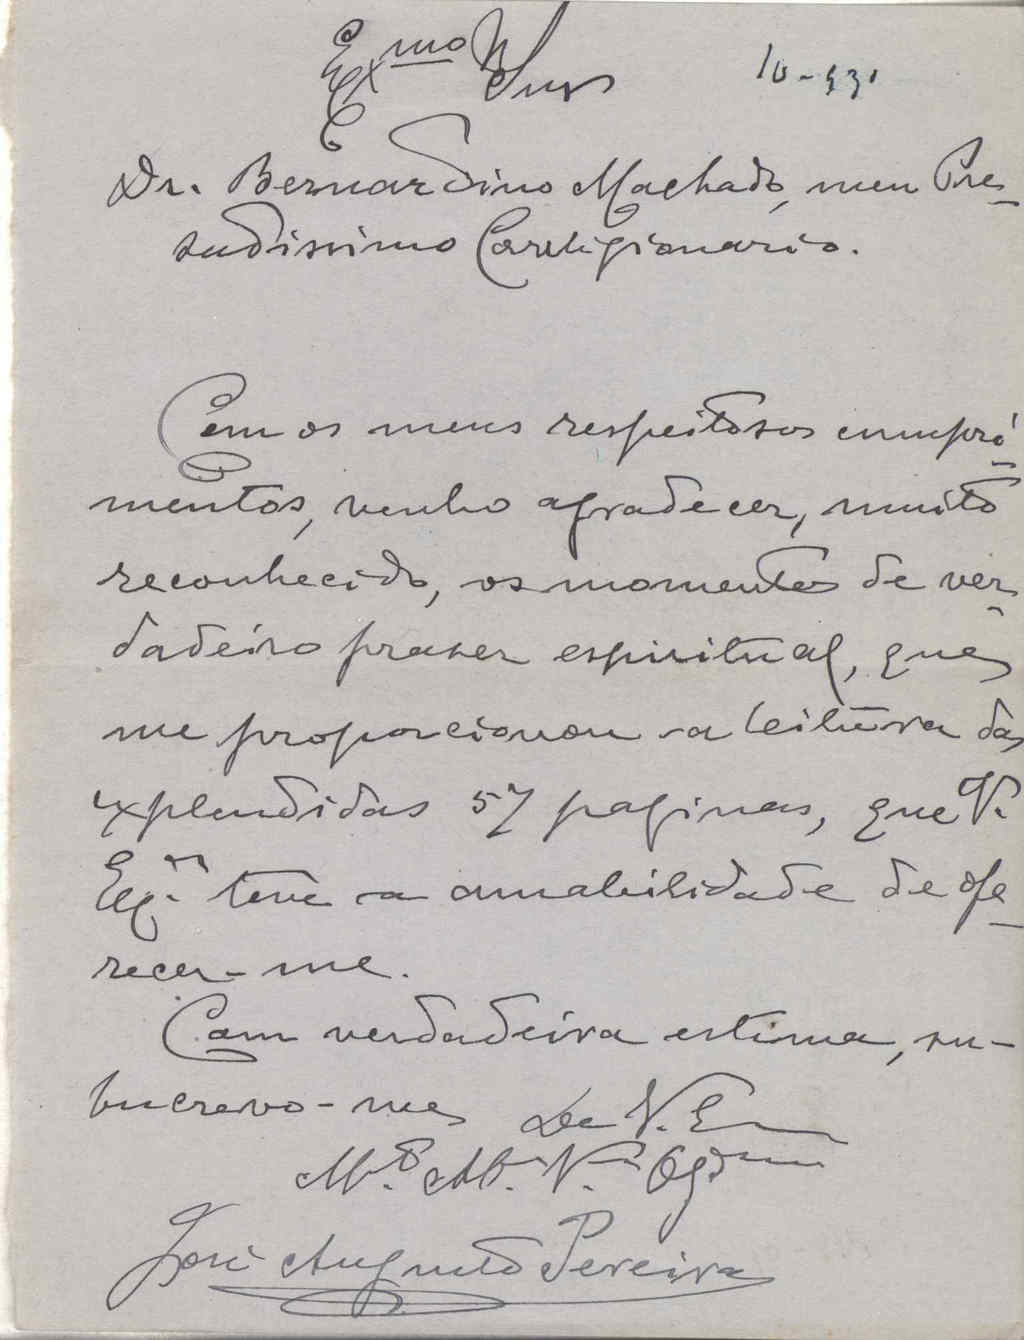 Ex.mo Snr
10-931
Dr. Bernardino Machado, meu Pres-
tadissimo Correligionario.
Com os meus respeitosos cumpri-
mentos, venho agradecer, muito
reconhecido, os momentos de ver-
dadeiro praser espiritual, que
me proporcionou a leitura das
explendidas 57 paginas, que V.
Ex.ª teve a amabilidade de ofe-
recer-me.
Com verdadeira estima, su-
bscrevo-me De V. E
M.to At. V. Ogdo
José Augusto Pereira